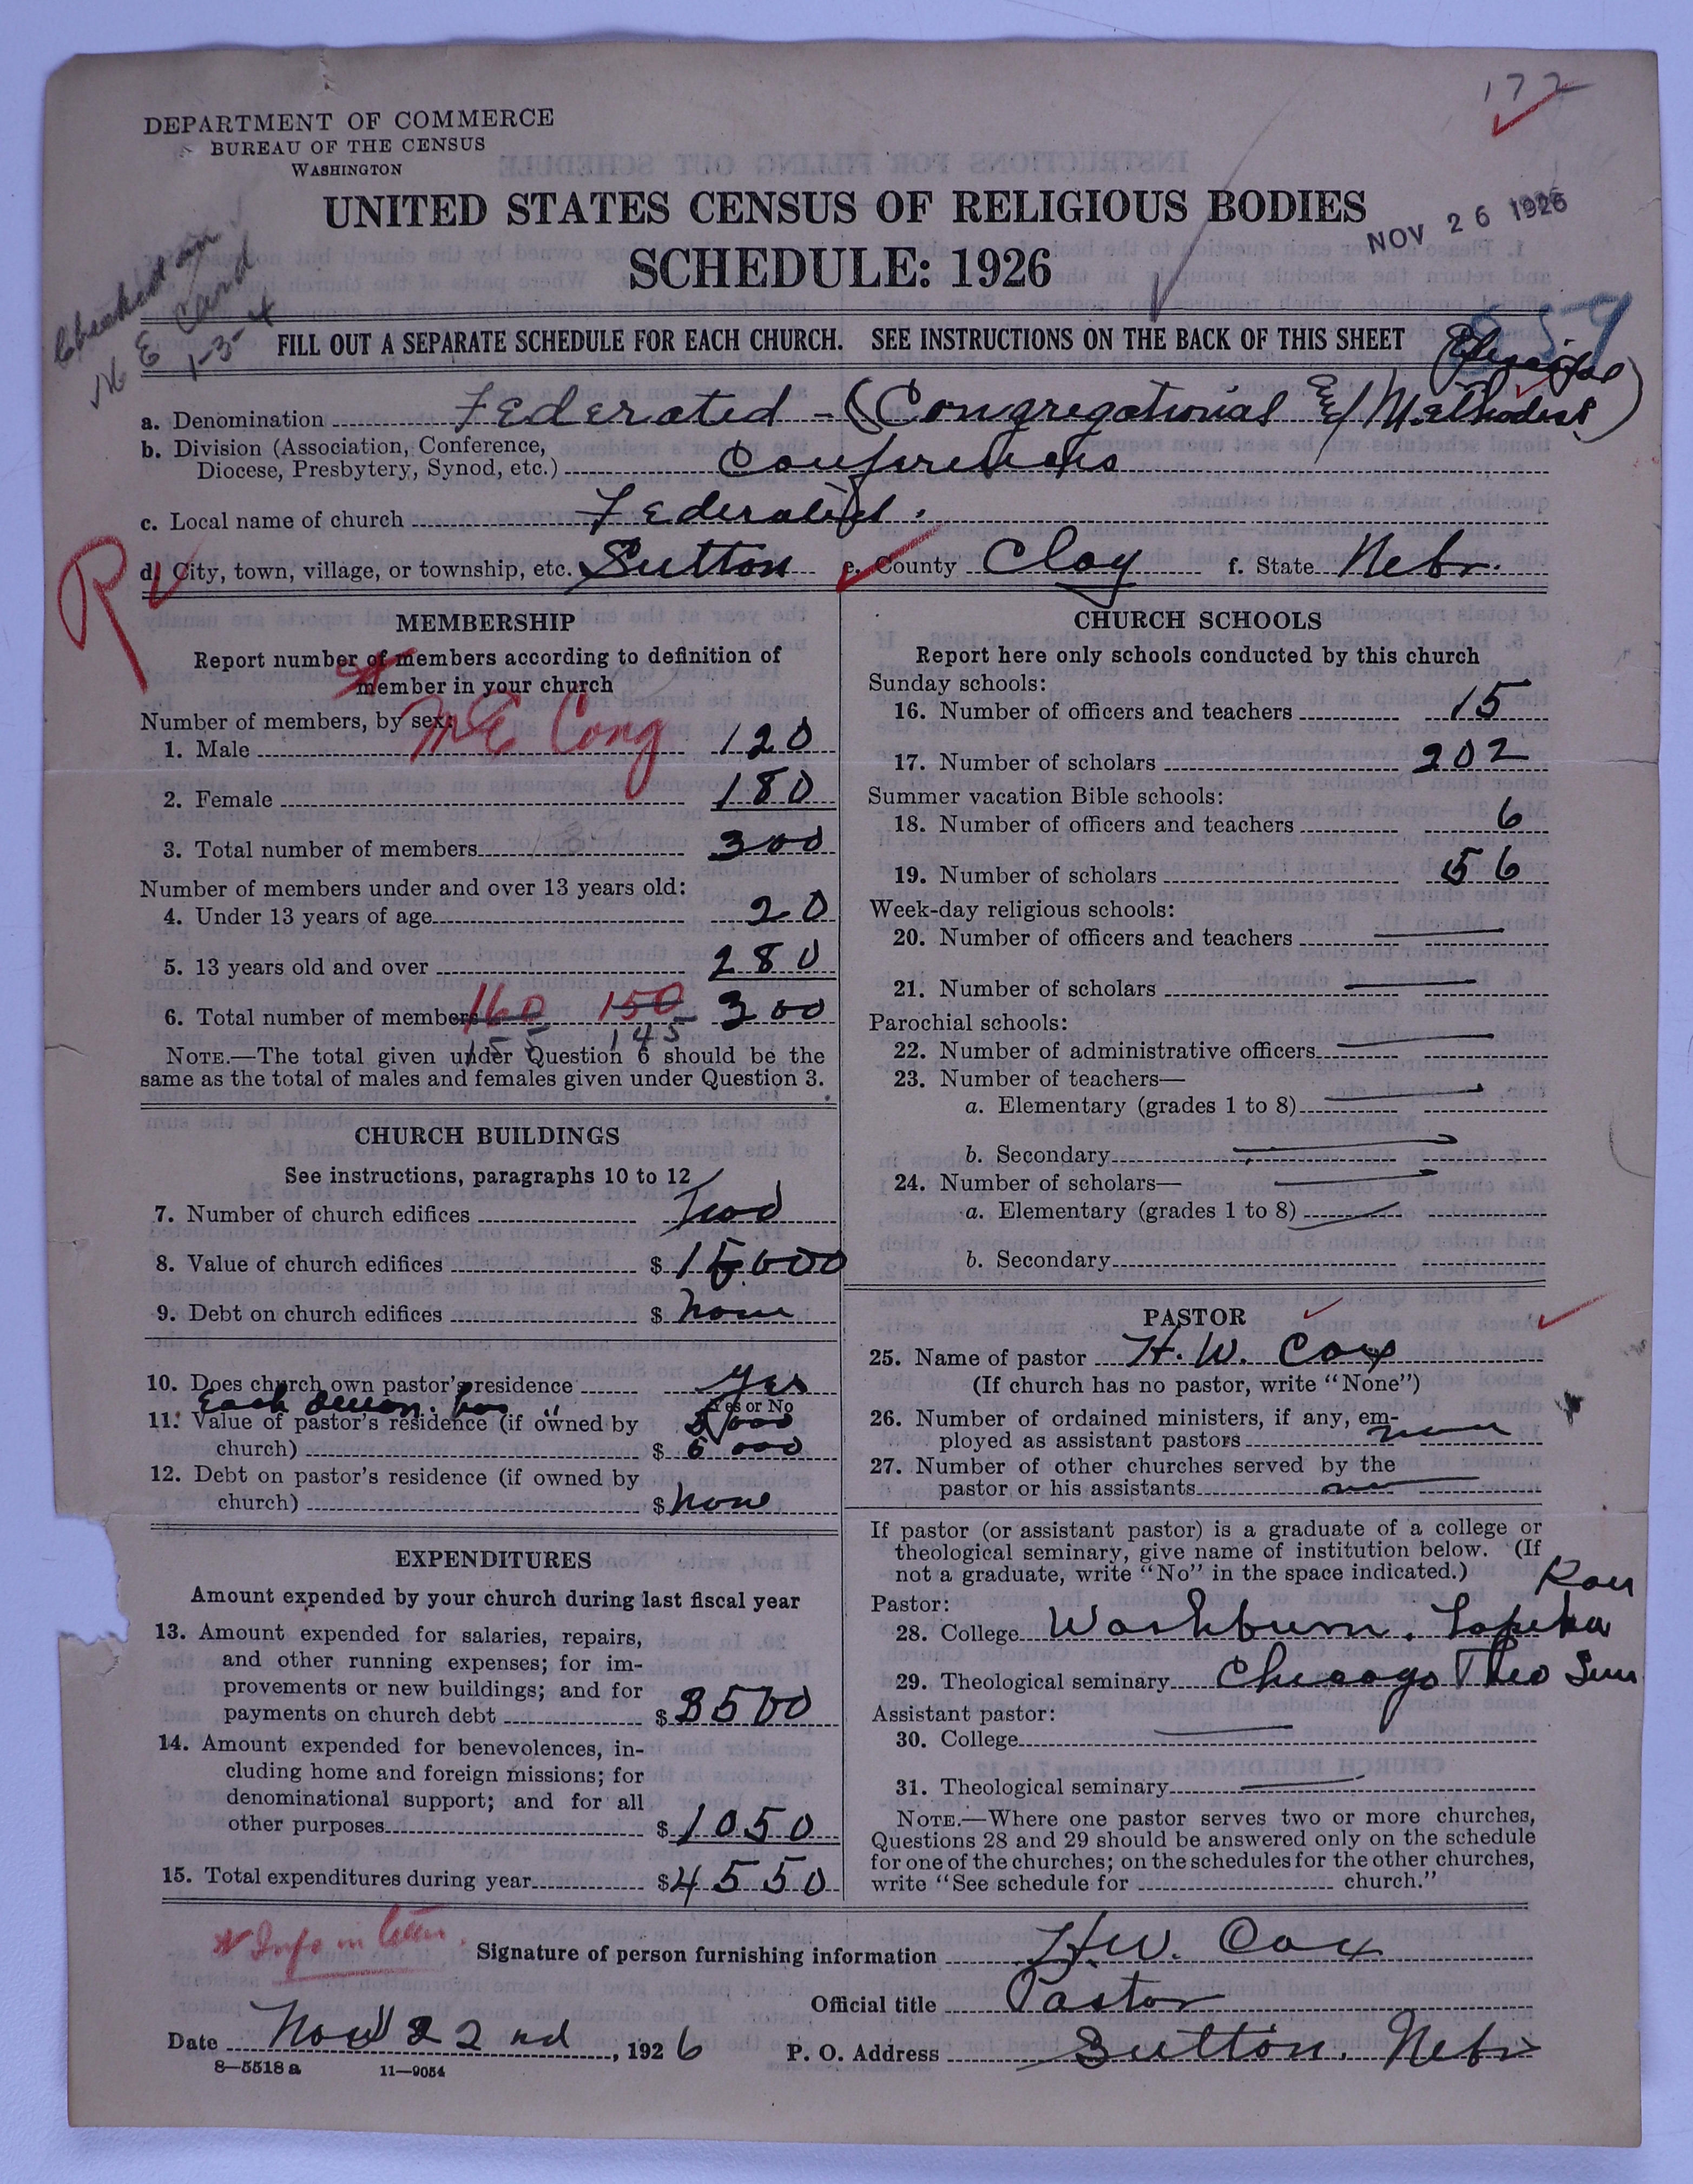 172
DEPARTMENT OF COMMERCE
BUREAU OF THE CENSUS
WASHINGTON
UNITED STATES CENSUS OF RELIGIOUS BODIES
NOV 26 1926
SCHEDULE: 1926
Checked on
M E Card
1-3-4
FILL OUT A SEPARATE SCHEDULE FOR EACH CHURCH. SEE INSTRUCTIONS ON THE BACK OF THIS SHEET
859
Episcopal
a. Denomination Federated - (Congregational & Methodist)
b. Division (Association, Conference,
Diocese, Presbytery, Synod, etc.) Conferences
c. Local name of church Federated.
d. City, town, village, or township, etc. Sutton e. County Clay f. State Nebr.
R
MEMBERSHIP
Report number of members according to definition of
member in your church
Number of members, by sex:
M E Cong
1. Male 120
2. Female 180
3. Total number of members 300
Number of members under and over 13 years old:
4. Under 13 years of age 20
5. 13 years old and over 280
6. Total number of members 160 150 300
155 145
NOTE.—The total given under Question 6 should be the
same as the total of males and females given under Question 3.
CHURCH BUILDINGS
See instructions, paragraphs 10 to 12
7. Number of church edifices Two
8. Value of church edifices $ 15000
9. Debt on church edifices $ none
10. Does church own pastor's residence yes
Yes or No
Each denom. has
11. Value of pastor's residence (if owned by
church) $ 6000
12. Debt on pastor's residence (if owned by
church) $ none
EXPENDITURES
Amount expended by your church during last fiscal year
13. Amount expended for salaries, repairs,
and other running expenses; for im-
provements or new buildings; and for
payments on church debt $ 3500
14. Amount expended for benevolences, in-
cluding home and foreign missions; for
denominational support; and for all
other purposes $ 1050
15. Total expenditures during year $ 4550
CHURCH SCHOOLS
Report here only schools conducted by this church
Sunday schools:
16. Number of officers and teachers 15
17. Number of scholars 202
Summer vacation Bible schools:
18. Number of officers and teachers 6
19. Number of scholars 56
Week-day religious schools:
20. Number of officers and teachers
21. Number of scholars
Parochial schools:
22. Number of administrative officers
23. Number of teachers—
a. Elementary (grades 1 to 8)
b. Secondary
24. Number of scholars—
a. Elementary (grades 1 to 8)
b. Secondary
PASTOR
25. Name of pastor H. W. Cox
(If church has no pastor, write "None")
26. Number of ordained ministers, if any, em-
ployed as assistant pastors none
27. Number of other churches served by the
pastor or his assistants no
If pastor (or assistant pastor) is a graduate of a college or
theological seminary, give name of institution below. (If
not a graduate, write "No" in the space indicated.)
Pastor: Kan
28. College Washburn. Topeka
29. Theological seminary Chicago Theo Sem
Assistant pastor:
30. College
31. Theological seminary
NOTE.—Where one pastor serves two or more churches,
Questions 28 and 29 should be answered only on the schedule
for one of the churches; on the schedules for the other churches,
write "See schedule for church."
* Info in letter.
Signature of person furnishing information H. W. Cox
Official title Pastor
Date Nov 22nd, 1926 P. O. Address Sutton, Nebr
8—5518 a 11—9054